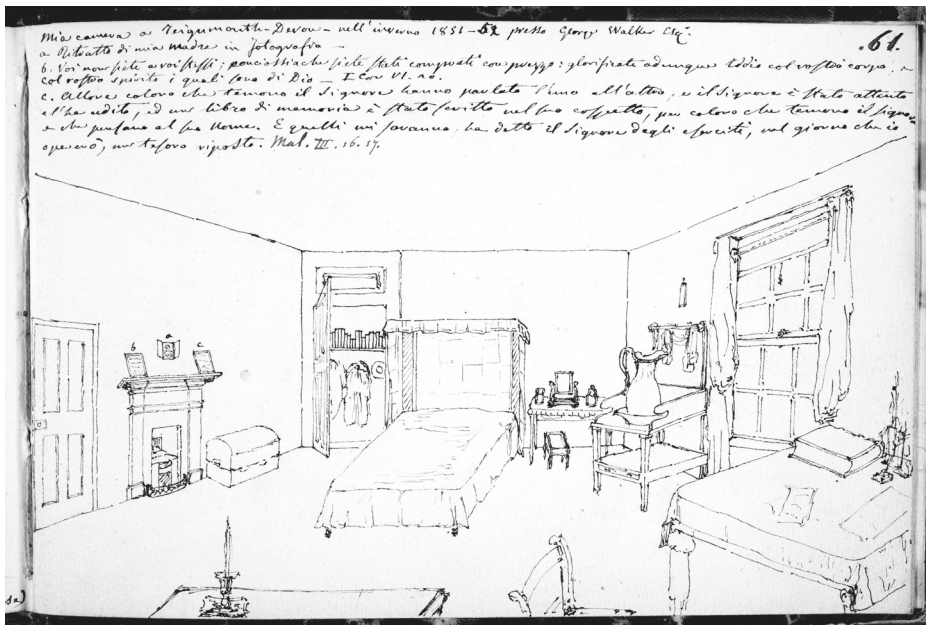 Mia camera a Teignmouth - Devon - nell'inverno 1851-52 presso George Walker Esqr.
.61.
a Ritratto di mia madre in fotografia -
b. Voi non siete a voi stessi; poichè siete stati comprati con prezzo: glorificate adunque Iddio col vostro corpo, e
col vostro spirito i quali sono di Dio - I Cor VI. 20.
c. Allora coloro che temono il Signore hanno parlato l'uno all'altro, e il Signore è stato attento
e l'ha udito, ed un libro di memoria è stato scritto nel suo cospetto, per coloro che temono il Signore
e che pensano al suo Nome. E quelli mi saranno, ha detto il Signore degli eserciti, nel giorno che io
opererò, un tesoro riposto. Mal. III. 16. 17.
b a c